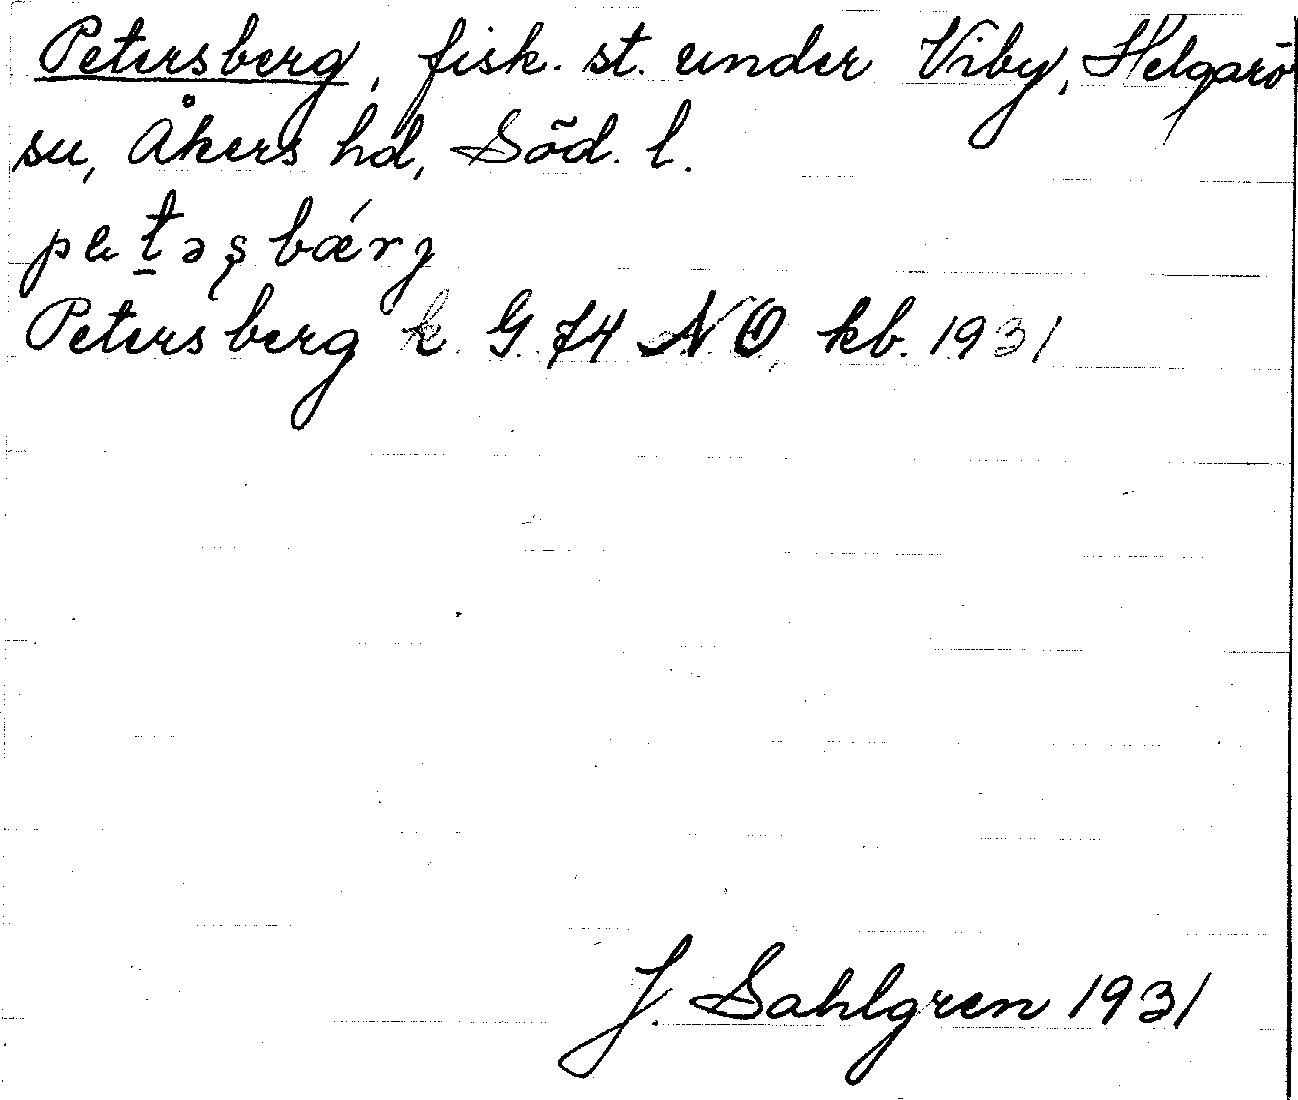 Petersberg, fisk. st. under Viby, Helgarö
su, Åkers hd, Söd. l.
Petersberg k. G. 74 NO, kb. 1931
J. Sahlgren 1931